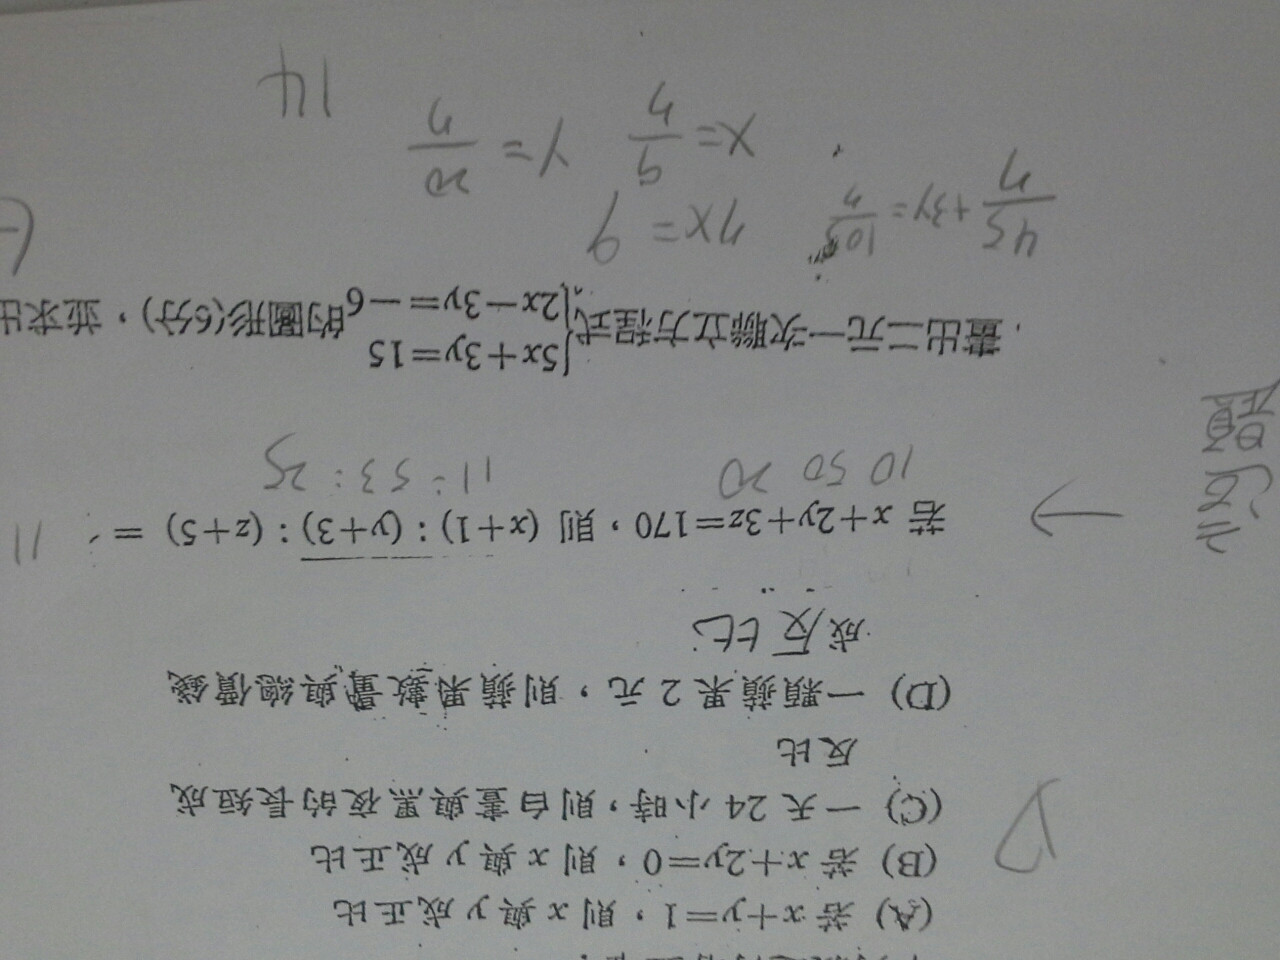 (A) 若 x+y=1，則 x 與 y 成正比
(B) 若 x+2y=0，則 x 與 y 成正比
(C) 一天 24 小時，則白晝與黑夜的長短成
反比
(D) 一顆蘋果 2 元，則蘋果數量與總價錢
成反比
D
若 x+2y+3z=170，則 (x+1)：(y+3)：(z+5) =
11
10 50 20
11:53:25
題
畫出二元一次聯立方程式{5x+3y=15
2x-3y=-6的圖形(6分)，並求出
45/7+3y=105/7
7x=9
x=9/7 y=20/7
14